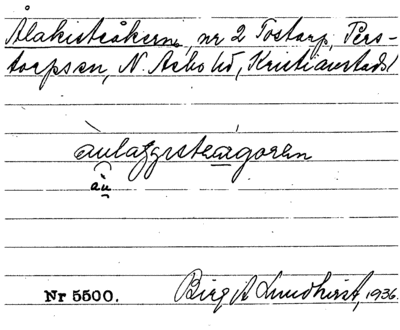 Ålakisteåkern, nr 2 Tostarp, Pers-
torps sn, N. Åsbo hd, Kristianstads l
àulaȝɩsteárgoren
àu
Nr 5500. Birgit Lundkvist, 1936.